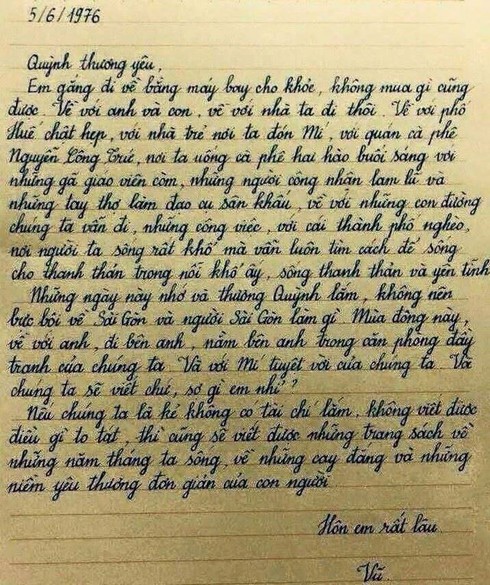 5/6/1976
Quỳnh thương yêu,
Em gắng đi về bằng máy bay cho khỏe, không mua gì cũng
được. Về với anh và con, về với nhà ta đi thôi. Về với phố
Huế chật hẹp, với nhà trẻ nơi ta đón Mí, với quán cà phê
Nguyễn Công Trứ, nơi ta uống cà phê hai hào buổi sáng với
những gã giáo viên còm, những người công nhân lam lũ và
những tay thợ làm đạo cụ sân khấu, về với những con đường
chúng ta vẫn đi, những công việc, với cái thành phố nghèo,
nơi người ta sống rất khổ mà vẫn luôn tìm cách để sống
cho thanh thản trong nỗi khổ ấy, sống thanh thản và yên tĩnh
Những ngày này nhớ và thương Quỳnh lắm, không nên
bực bội về Sài Gòn và người Sài Gòn làm gì. Mùa đông này,
về với anh, đi bên anh, nằm bên anh trong căn phòng đầy
tranh của chúng ta. Và với Mí tuyệt vời của chúng ta. Và
chúng ta sẽ viết chứ, sợ gì em nhỉ?
Nếu chúng ta là kẻ không có tài chi lắm, không viết được
điều gì to tát, thì cũng sẽ viết được những trang sách về
những năm tháng ta sống, về những cay đắng và những
niềm yêu thương đơn giản của con người
Hôn em rất lâu
Vũ